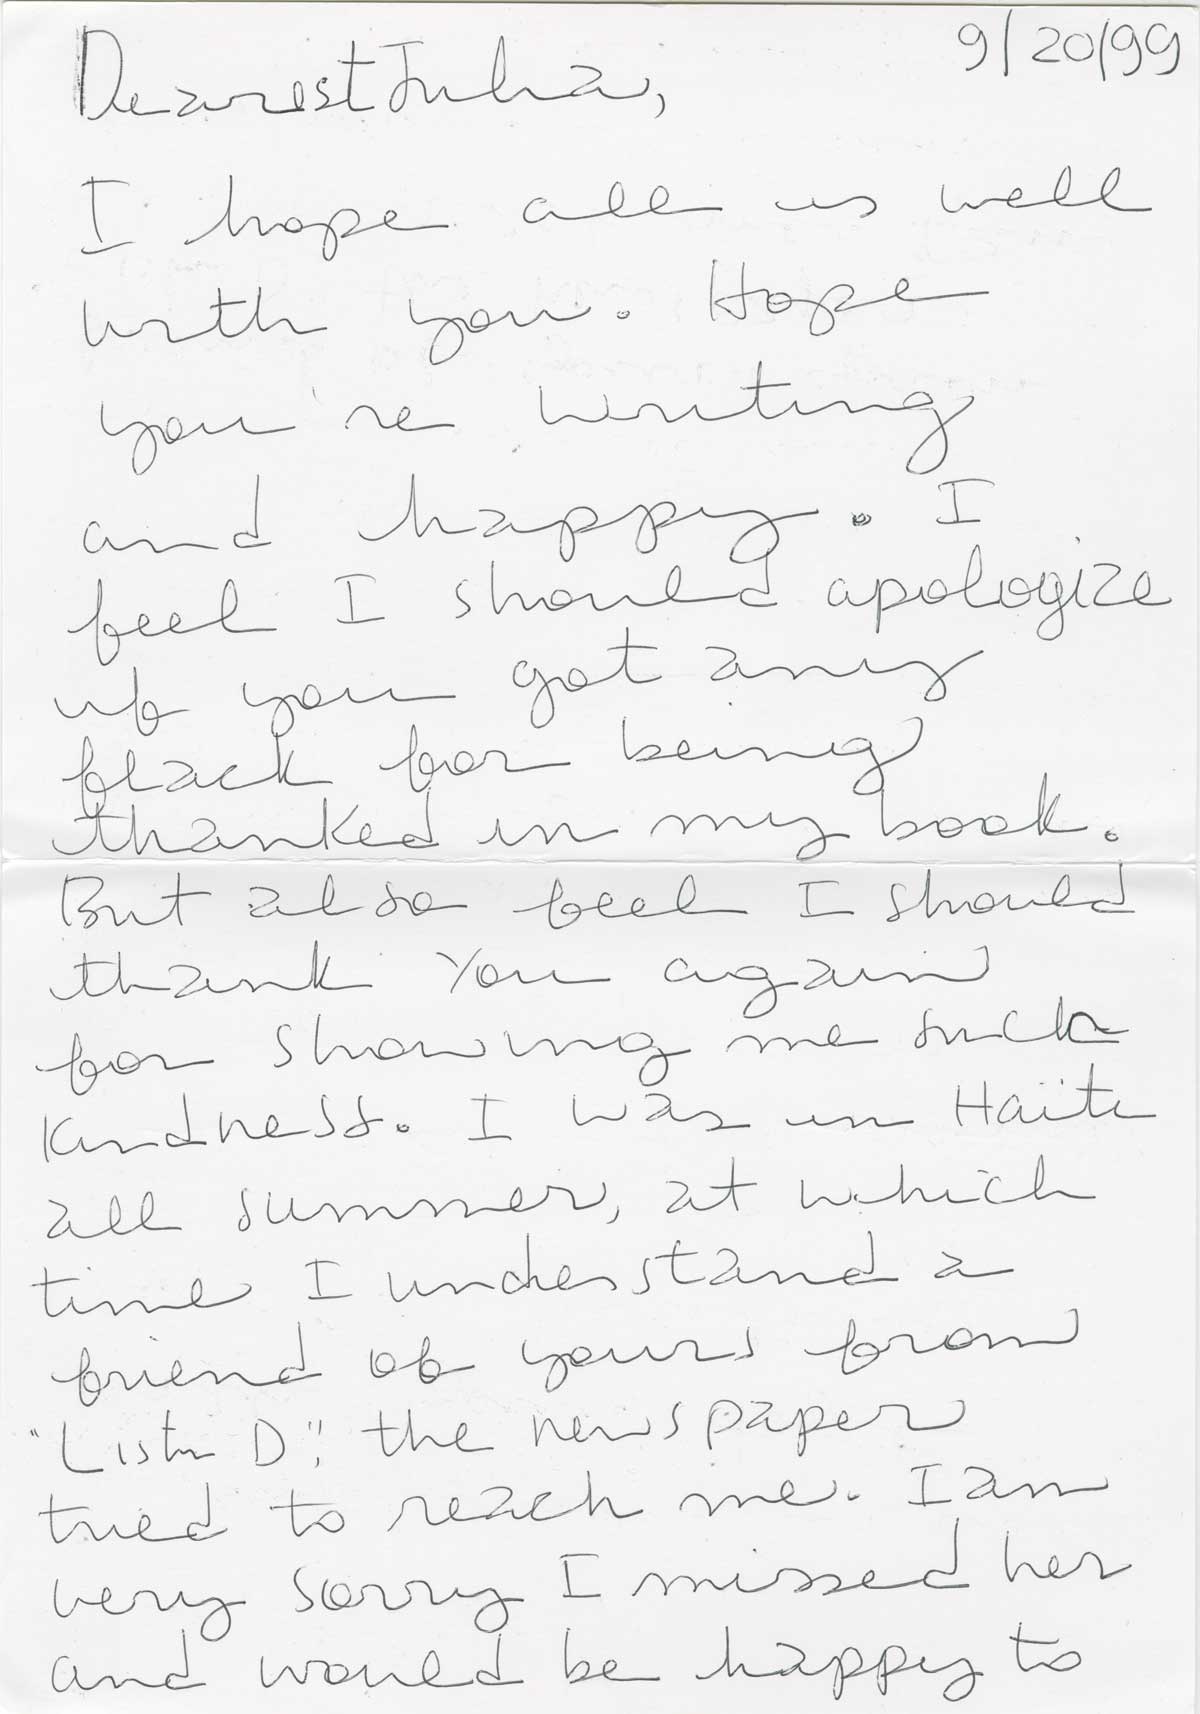 9/20/99
Dearest Julia,
I hope all is well
with you. Hope
you're writing
and happy. I
feel I should apologize
if you got any
flack for being
thanked in my book.
But also feel I should
thank you again
for showing me such
kindness. I was in Haïti
all summer, at which
time I understand a
friend of yours from
"Listin D", the newspaper
tried to reach me. I am
very sorry I missed her
and would be happy to